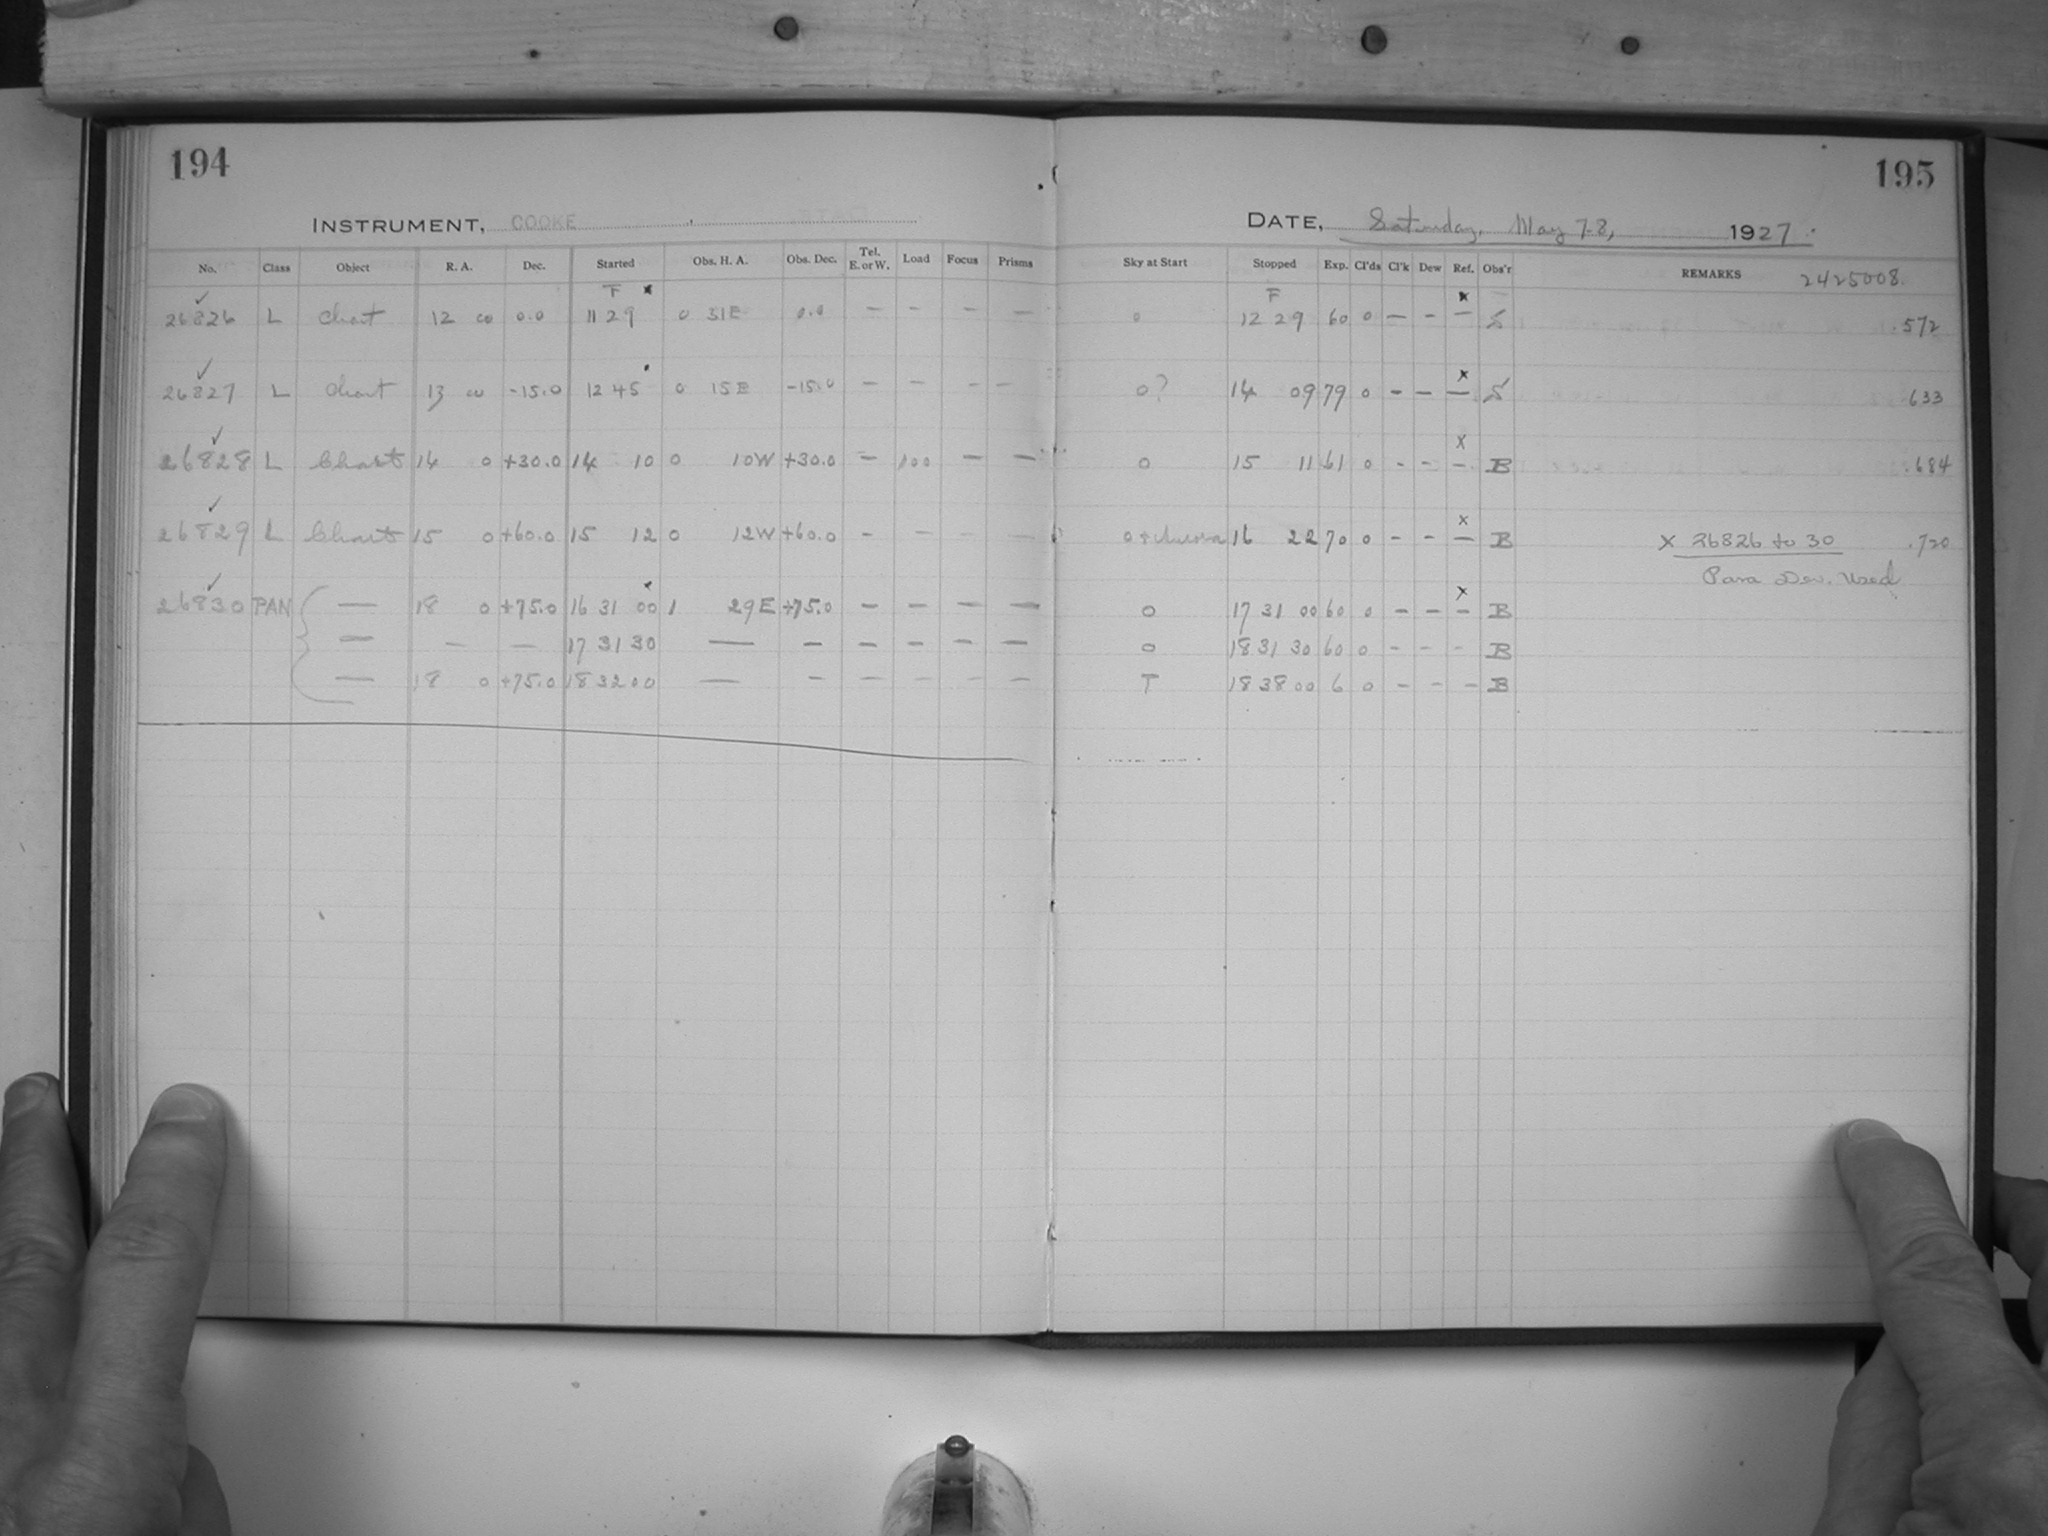 194
INSTRUMENT, COOKE
No. Class Object R. A. Dec. Started Obs. H. A. Obs. Dec. Tel. E. or W. Load Focus Prisms
F
26826 L Chart 12 00 0.0 11 29 0 31E 0.0 — — — —
26827 L Chart 13 00 -15.0 12 45 0 15E -15.0 — — — —
26828 L Chart 14 0 +30.0 14 10 0 10W +30.0 — 100 — —
26829 L Chart 15 0 +60.0 15 12 0 12W +60.0 — — — —
26830 PAN — 18 0 +75.0 16 31 00 1 29E +75.0 — — — —
— — — 17 31 30 — — — — — —
— 18 0 +75.0 18 32 00 — — — — — —
195
DATE, Saturday, May 7-8, 1927.
Sky at Start Stopped Exp. Cl'ds Cl'k Dew Ref. Obs'r REMARKS 2425008.
F x
0 12 29 60 0 — — — S .572
x
0? 14 09 79 0 — — — S .633
x
0 15 11 61 0 — — — B .684
x
0 + Aurora 16 22 70 0 — — — B x 26826 to 30 .720
Para Dev. Used
x
0 17 31 00 60 0 — — — B
0 18 31 30 60 0 — — — B
T 18 38 00 6 0 — — — B